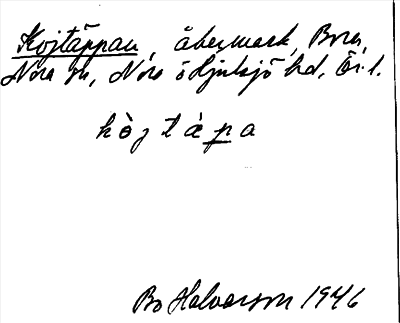 Kojtäppan, åkermark, Bora,
Nora sn, Nora o Hjulsjö hd, Ör. l.
kòjtápa
Bo Halvarson 1946